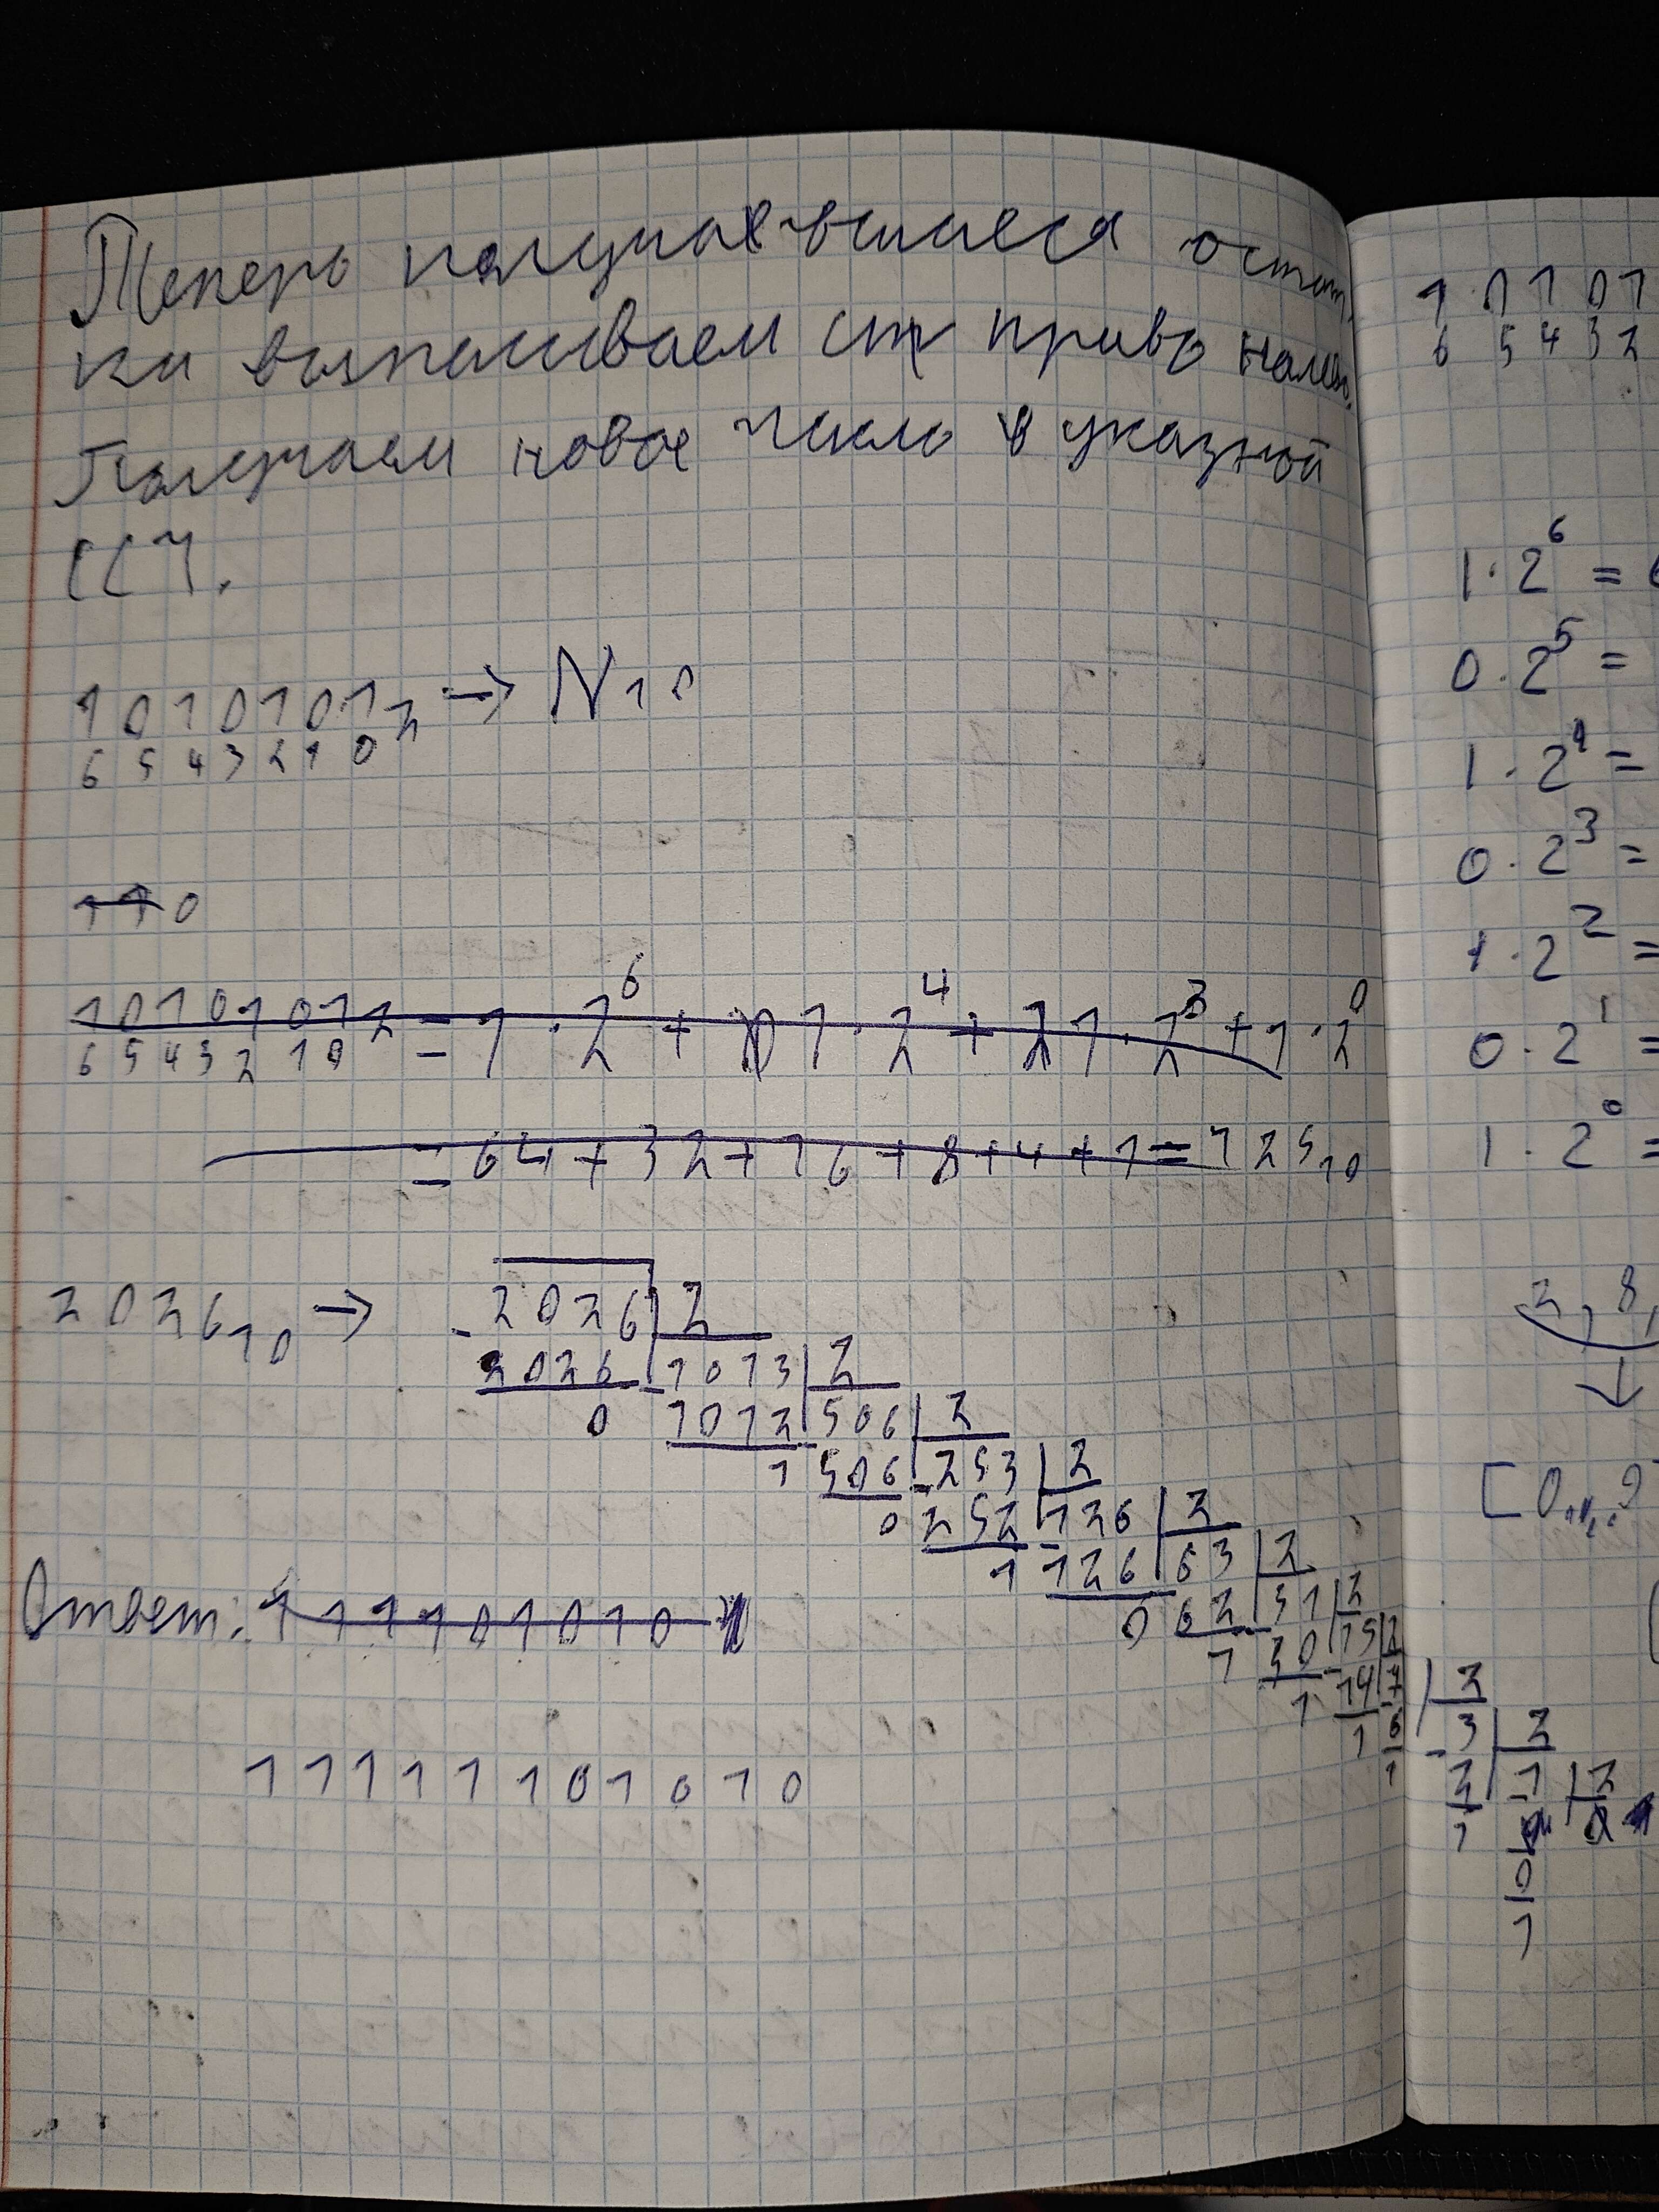 Теперь получившиеся остат
ки выписываем справо налево.
Получаем новое число в указной
ССЧ.
1010101₂ → N₁₀
6 5 4 3 2 1 0
110
1010101₂ = 1·2⁶ + 1·2⁴ + 1·2³ + 1·2⁰
6 5 4 3 2 1 0
= 64+32+16+8+4+1=125₁₀
2026₁₀ →
2026 2
2026 1013 2
0 1012 506 2
1 506 253 2
0 252 126 2
1 126 63 2
0 62 31 2
1 30 15 2
1 14 7 2
1 6 3 2
1 2 1 2
1 0
1
Ответ: 111101010
11111101010
1 0 1 0 1
6 5 4 3 2
1·2⁶ =
0·2⁵ =
1·2⁴ =
0·2³ =
1·2² =
0·2¹ =
1·2⁰ =
2, 8,
↓